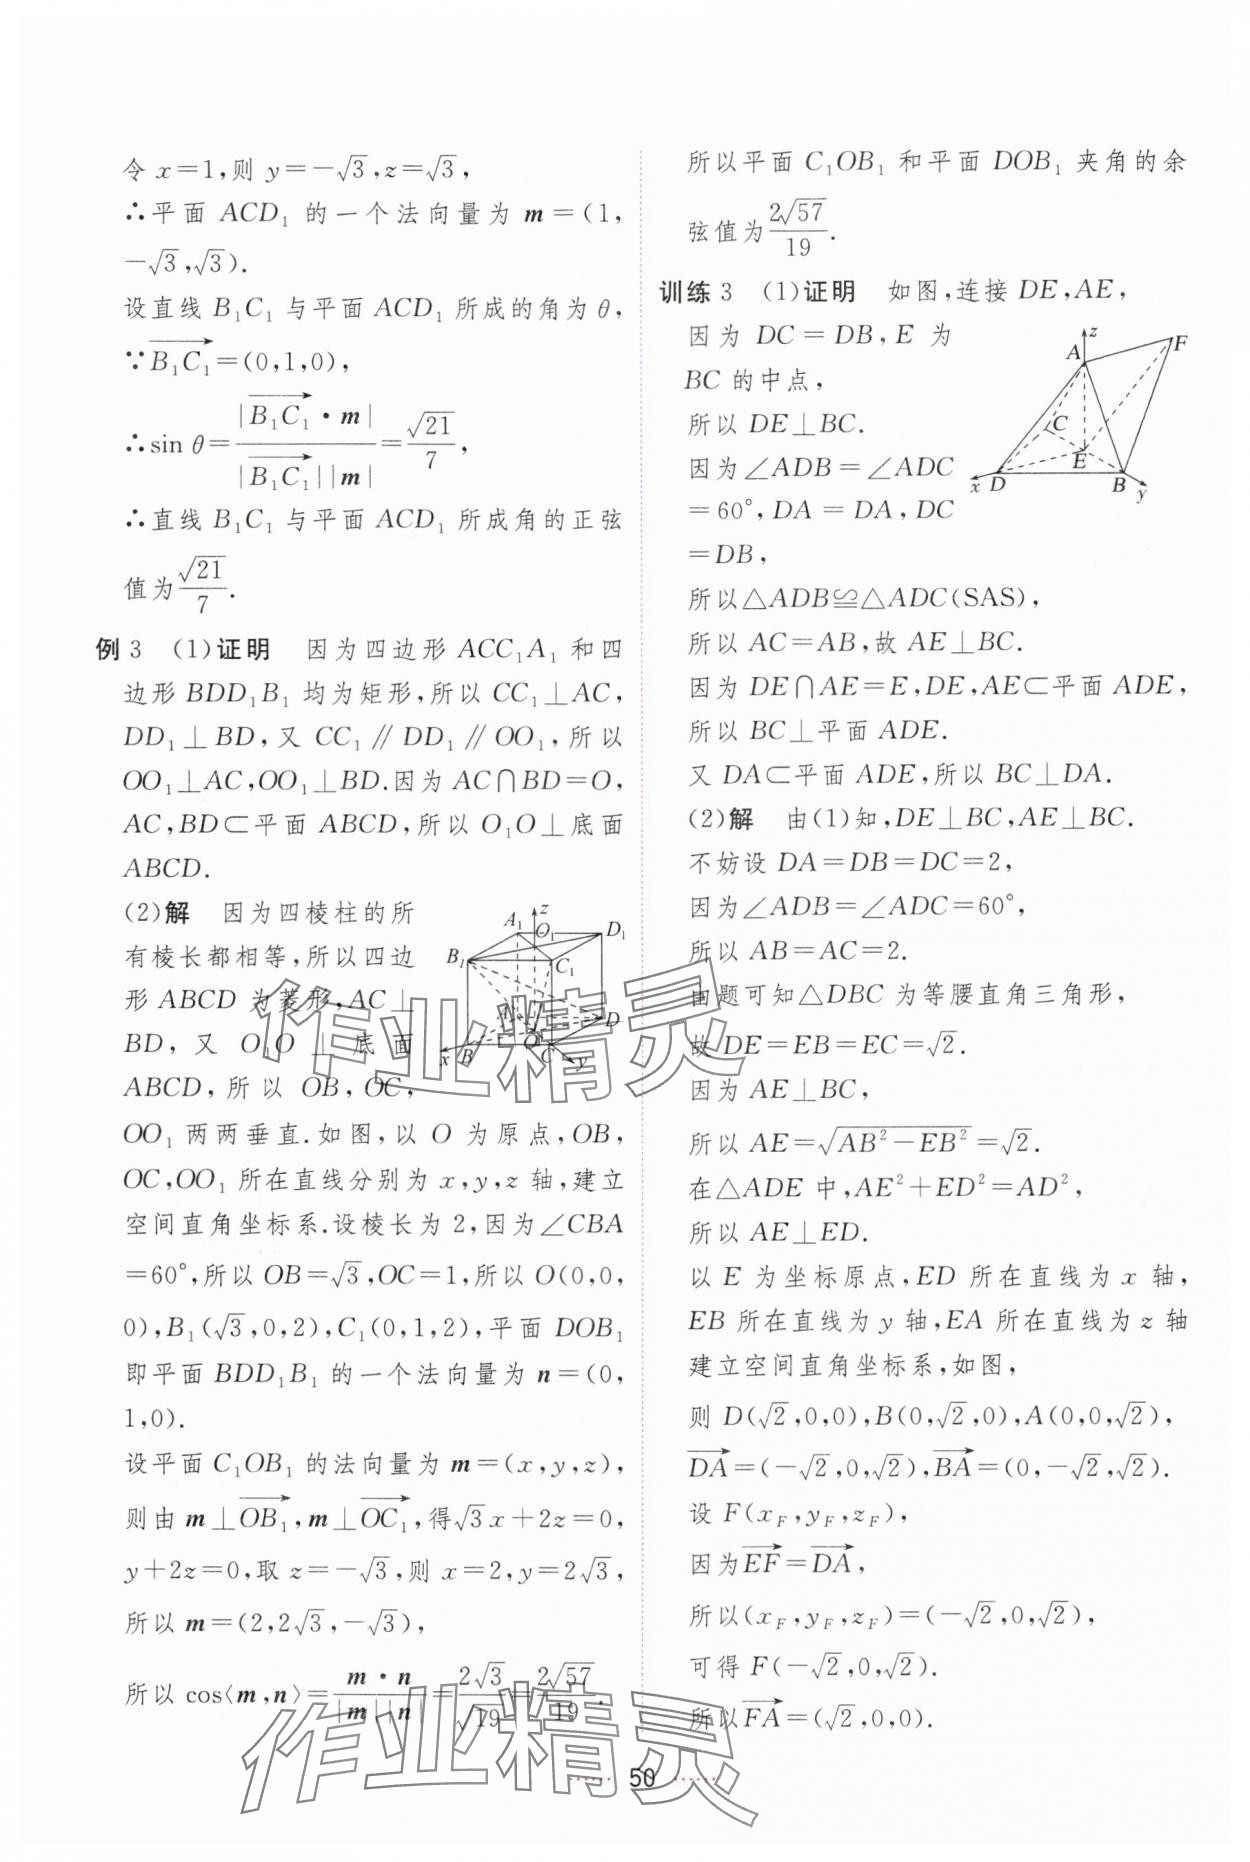 令 x=1,则 y=-√3,z=√3,
∴平面 ACD₁ 的一个法向量为 m=(1,
-√3,√3).
设直线 B₁C₁ 与平面 ACD₁ 所成的角为 θ,
∵B₁C₁→=(0,1,0),
∴sin θ=|B₁C₁→·m|/(|B₁C₁→||m|)=√21/7,
∴直线 B₁C₁ 与平面 ACD₁ 所成角的正弦
值为√21/7.
例 3 (1)证明 因为四边形 ACC₁A₁ 和四
边形 BDD₁B₁ 均为矩形,所以 CC₁⊥AC,
DD₁⊥BD,又 CC₁∥DD₁∥OO₁,所以
OO₁⊥AC,OO₁⊥BD.因为 AC∩BD=O,
AC,BD⊂平面 ABCD,所以 O₁O⊥底面
ABCD.
(2)解 因为四棱柱的所
有棱长都相等,所以四边
形 ABCD 为菱形,AC⊥
BD,又 O₁O⊥底面
ABCD,所以 OB,OC,
OO₁ 两两垂直.如图,以 O 为原点,OB,
OC,OO₁ 所在直线分别为 x,y,z 轴,建立
空间直角坐标系.设棱长为 2,因为∠CBA
=60°,所以 OB=√3,OC=1,所以 O(0,0,
0),B₁(√3,0,2),C₁(0,1,2),平面 DOB₁
即平面 BDD₁B₁ 的一个法向量为 n=(0,
1,0).
设平面 C₁OB₁ 的法向量为 m=(x,y,z),
则由 m⊥OB₁→,m⊥OC₁→,得√3x+2z=0,
y+2z=0,取 z=-√3,则 x=2,y=2√3,
所以 m=(2,2√3,-√3),
所以 cos⟨m,n⟩=m·n/(|m||n|)=2√3/√19=2√57/19.
A₁ z O₁ D₁ B₁ C₁ A D O x B C y
所以平面 C₁OB₁ 和平面 DOB₁ 夹角的余
弦值为2√57/19.
训练 3 (1)证明 如图,连接 DE,AE,
因为 DC=DB,E 为
BC 的中点,
所以 DE⊥BC.
因为∠ADB=∠ADC
=60°,DA=DA,DC
=DB,
所以△ADB≌△ADC(SAS),
所以 AC=AB,故 AE⊥BC.
因为 DE∩AE=E,DE,AE⊂平面 ADE,
所以 BC⊥平面 ADE.
又 DA⊂平面 ADE,所以 BC⊥DA.
z A F C E x D B y
(2)解 由(1)知,DE⊥BC,AE⊥BC.
不妨设 DA=DB=DC=2,
因为∠ADB=∠ADC=60°,
所以 AB=AC=2.
由题可知△DBC 为等腰直角三角形,
故 DE=EB=EC=√2.
因为 AE⊥BC,
所以 AE=√(AB²-EB²)=√2.
在△ADE 中,AE²+ED²=AD²,
所以 AE⊥ED.
以 E 为坐标原点,ED 所在直线为 x 轴,
EB 所在直线为 y 轴,EA 所在直线为 z 轴
建立空间直角坐标系,如图,
则 D(√2,0,0),B(0,√2,0),A(0,0,√2),
DA→=(-√2,0,√2),BA→=(0,-√2,√2).
设 F(x_F,y_F,z_F),
因为EF→=DA→,
所以(x_F,y_F,z_F)=(-√2,0,√2),
可得 F(-√2,0,√2).
所以FA→=(√2,0,0).
作业精灵
作业精灵
50